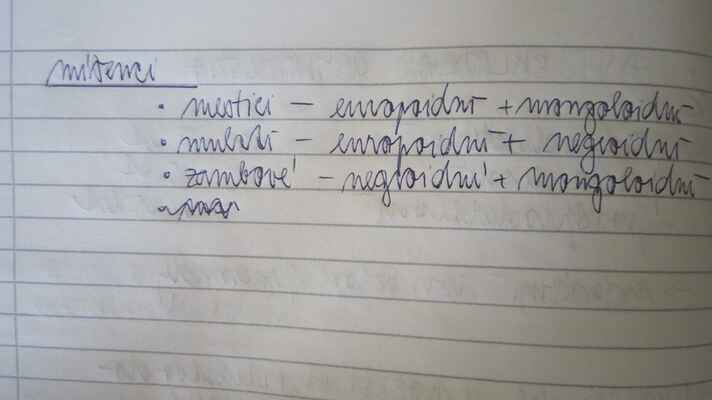 míšenci
• mestici – europoidní + mongoloidní
• mulati – europoidní + negroidní
• zambové – negroidní + mongoloidní